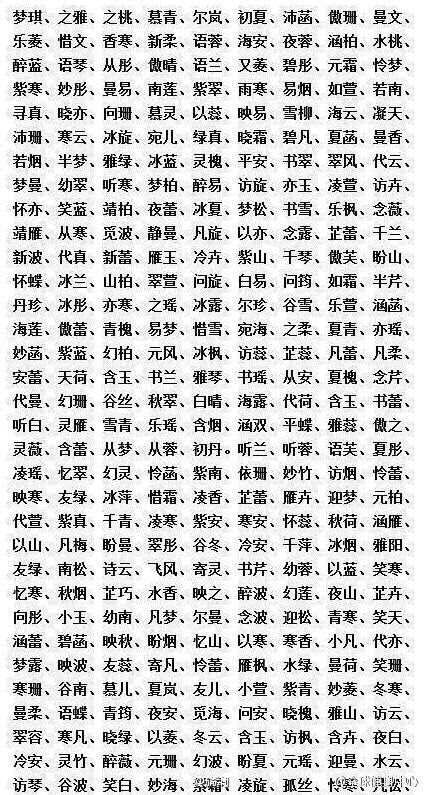 梦琪、之雅、之桃、慕青、尔岚、初夏、沛菡、傲珊、曼文、
乐菱、惜文、香寒、新柔、语蓉、海安、夜蓉、涵柏、水桃、
醉蓝、语琴、从彤、傲晴、语兰、又菱、碧彤、元霜、怜梦、
紫寒、妙彤、曼易、南莲、紫翠、雨寒、易烟、如萱、若南、
寻真、晓亦、向珊、慕灵、以蕊、映易、雪柳、海云、凝天、
沛珊、寒云、冰旋、宛儿、绿真、晓霜、碧凡、夏菡、曼香、
若烟、半梦、雅绿、冰蓝、灵槐、平安、书翠、翠风、代云、
梦曼、幼翠、听寒、梦柏、醉易、访旋、亦玉、凌萱、访卉、
怀亦、笑蓝、靖柏、夜蕾、冰夏、梦松、书雪、乐枫、念薇、
靖雁、从寒、觅波、静曼、凡旋、以亦、念露、芷蕾、千兰、
新波、代真、新蕾、雁玉、冷卉、紫山、千琴、傲芙、盼山、
怀蝶、冰兰、山柏、翠萱、问旋、白易、问筠、如霜、半芹、
丹珍、冰彤、亦寒、之瑶、冰露、尔珍、谷雪、乐萱、涵菡、
海莲、傲蕾、青槐、易梦、惜雪、宛海、之柔、夏青、亦瑶、
妙菡、紫蓝、幻柏、元风、冰枫、访蕊、芷蕊、凡蕾、凡柔、
安蕾、天荷、含玉、书兰、雅琴、书瑶、从安、夏槐、念芹、
代曼、幻珊、谷丝、秋翠、白晴、海露、代荷、含玉、书蕾、
听白、灵雁、雪青、乐瑶、含烟、涵双、平蝶、雅蕊、傲之、
灵薇、含蕾、从梦、从蓉、初丹。听兰、听蓉、语芙、夏彤、
凌瑶、忆翠、幻灵、怜菡、紫南、依珊、妙竹、访烟、怜蕾、
映寒、友绿、冰萍、惜霜、凌香、芷蕾、雁卉、迎梦、元柏、
代萱、紫真、千青、凌寒、紫安、寒安、怀蕊、秋荷、涵雁、
以山、凡梅、盼曼、翠彤、谷冬、冷安、千萍、冰烟、雅阳、
友绿、南松、诗云、飞风、寄灵、书芹、幼蓉、以蓝、笑寒、
忆寒、秋烟、芷巧、水香、映之、醉波、幻莲、夜山、芷卉、
向彤、小玉、幼南、凡梦、尔曼、念波、迎松、青寒、笑天、
涵蕾、碧菡、映秋、盼烟、忆山、以寒、寒香、小凡、代亦、
梦露、映波、友蕊、寄凡、怜蕾、雁枫、水绿、曼荷、笑珊、
寒珊、谷南、慕儿、夏岚、友儿、小萱、紫青、妙菱、冬寒、
曼柔、语蝶、青筠、夜安、觅海、问安、晓槐、雅山、访云、
翠容、寒凡、晓绿、以菱、冬云、含玉、访枫、含卉、夜白、
冷安、灵竹、醉薇、元珊、幻波、盼夏、元瑶、迎曼、水云、
访琴、谷波、笑白、妙海、紫霜、凌旋、孤丝、怜寒、凡松、